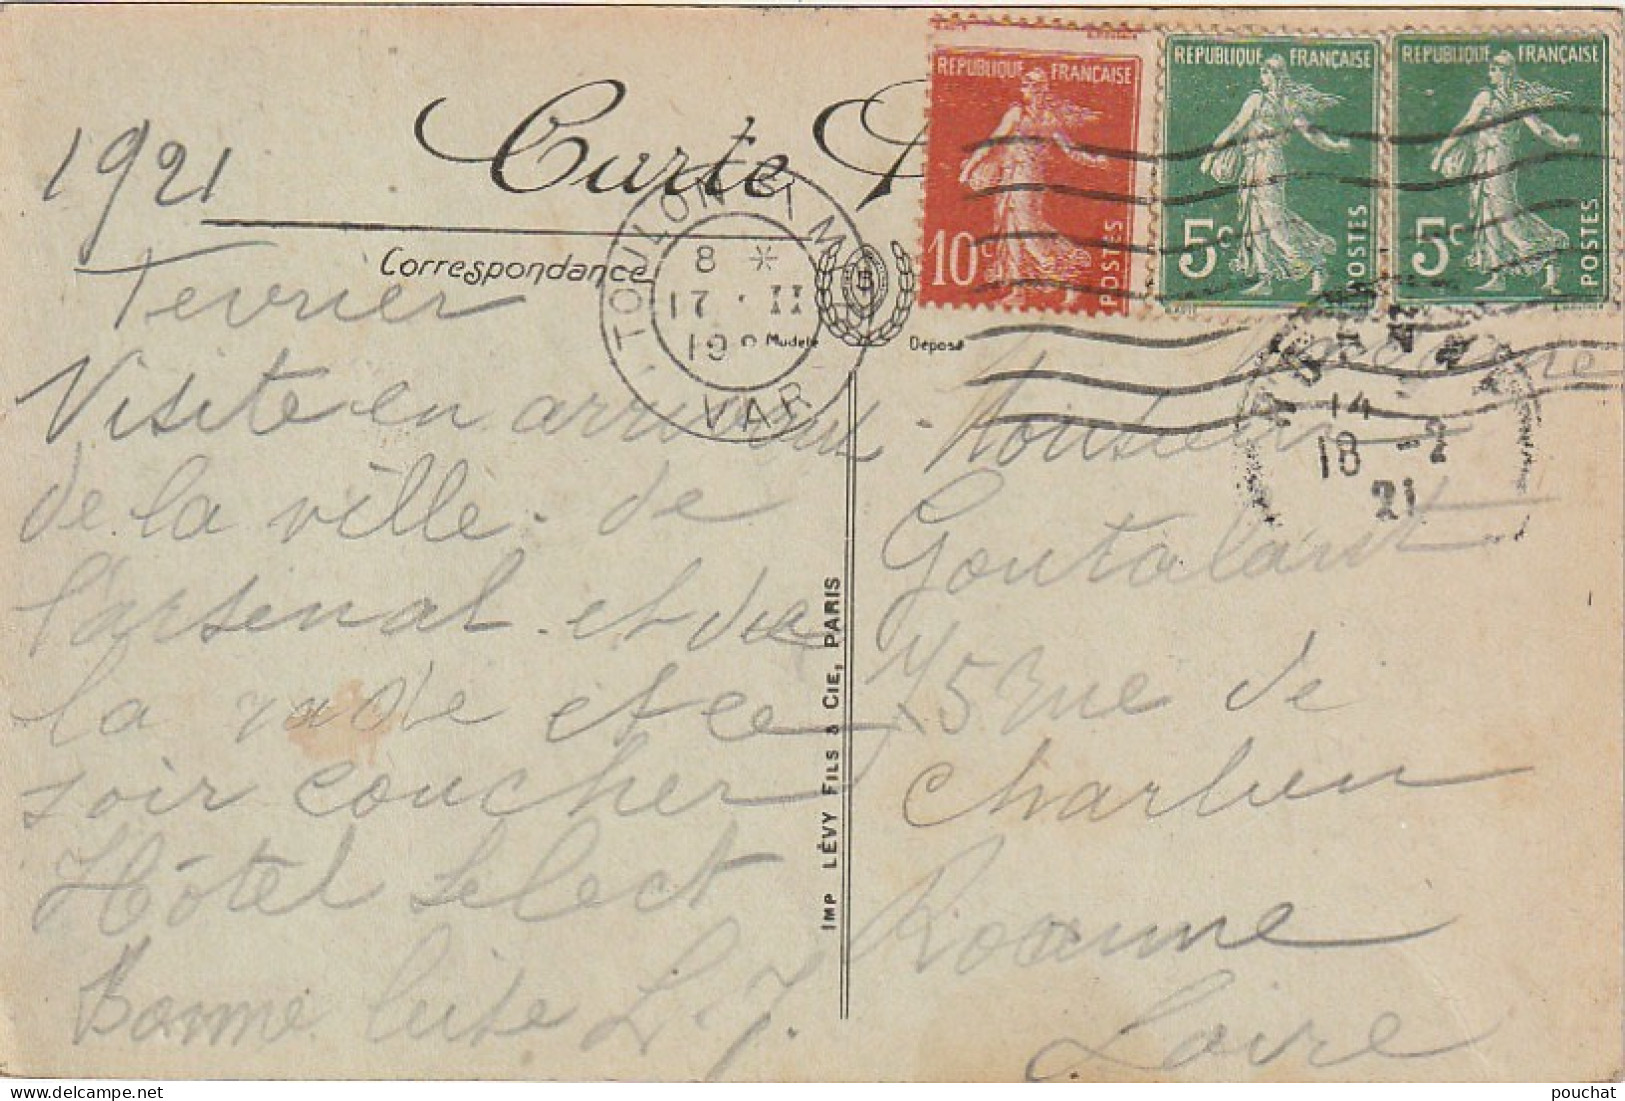 Carte
RÉPUBLIQUE FRANÇAISE
10c POSTES
RÉPUBLIQUE FRANÇAISE
5c POSTES
RÉPUBLIQUE FRANÇAISE
5c POSTES
Correspondance
Modèle Déposé
TOULON
VAR
8 *
17 · II
19
14
18 -2
21
1921
Fevrier
Visite en
de la ville. de
l'arsenal. et de
la rade et ce
soir coucher
Hôtel Select
Bonne L. J.
IMP LÉVY FILS & CIE, PARIS
Monsieur
Goutalant
75 Rue de
Charlieu
Roanne
Loire
pouchat